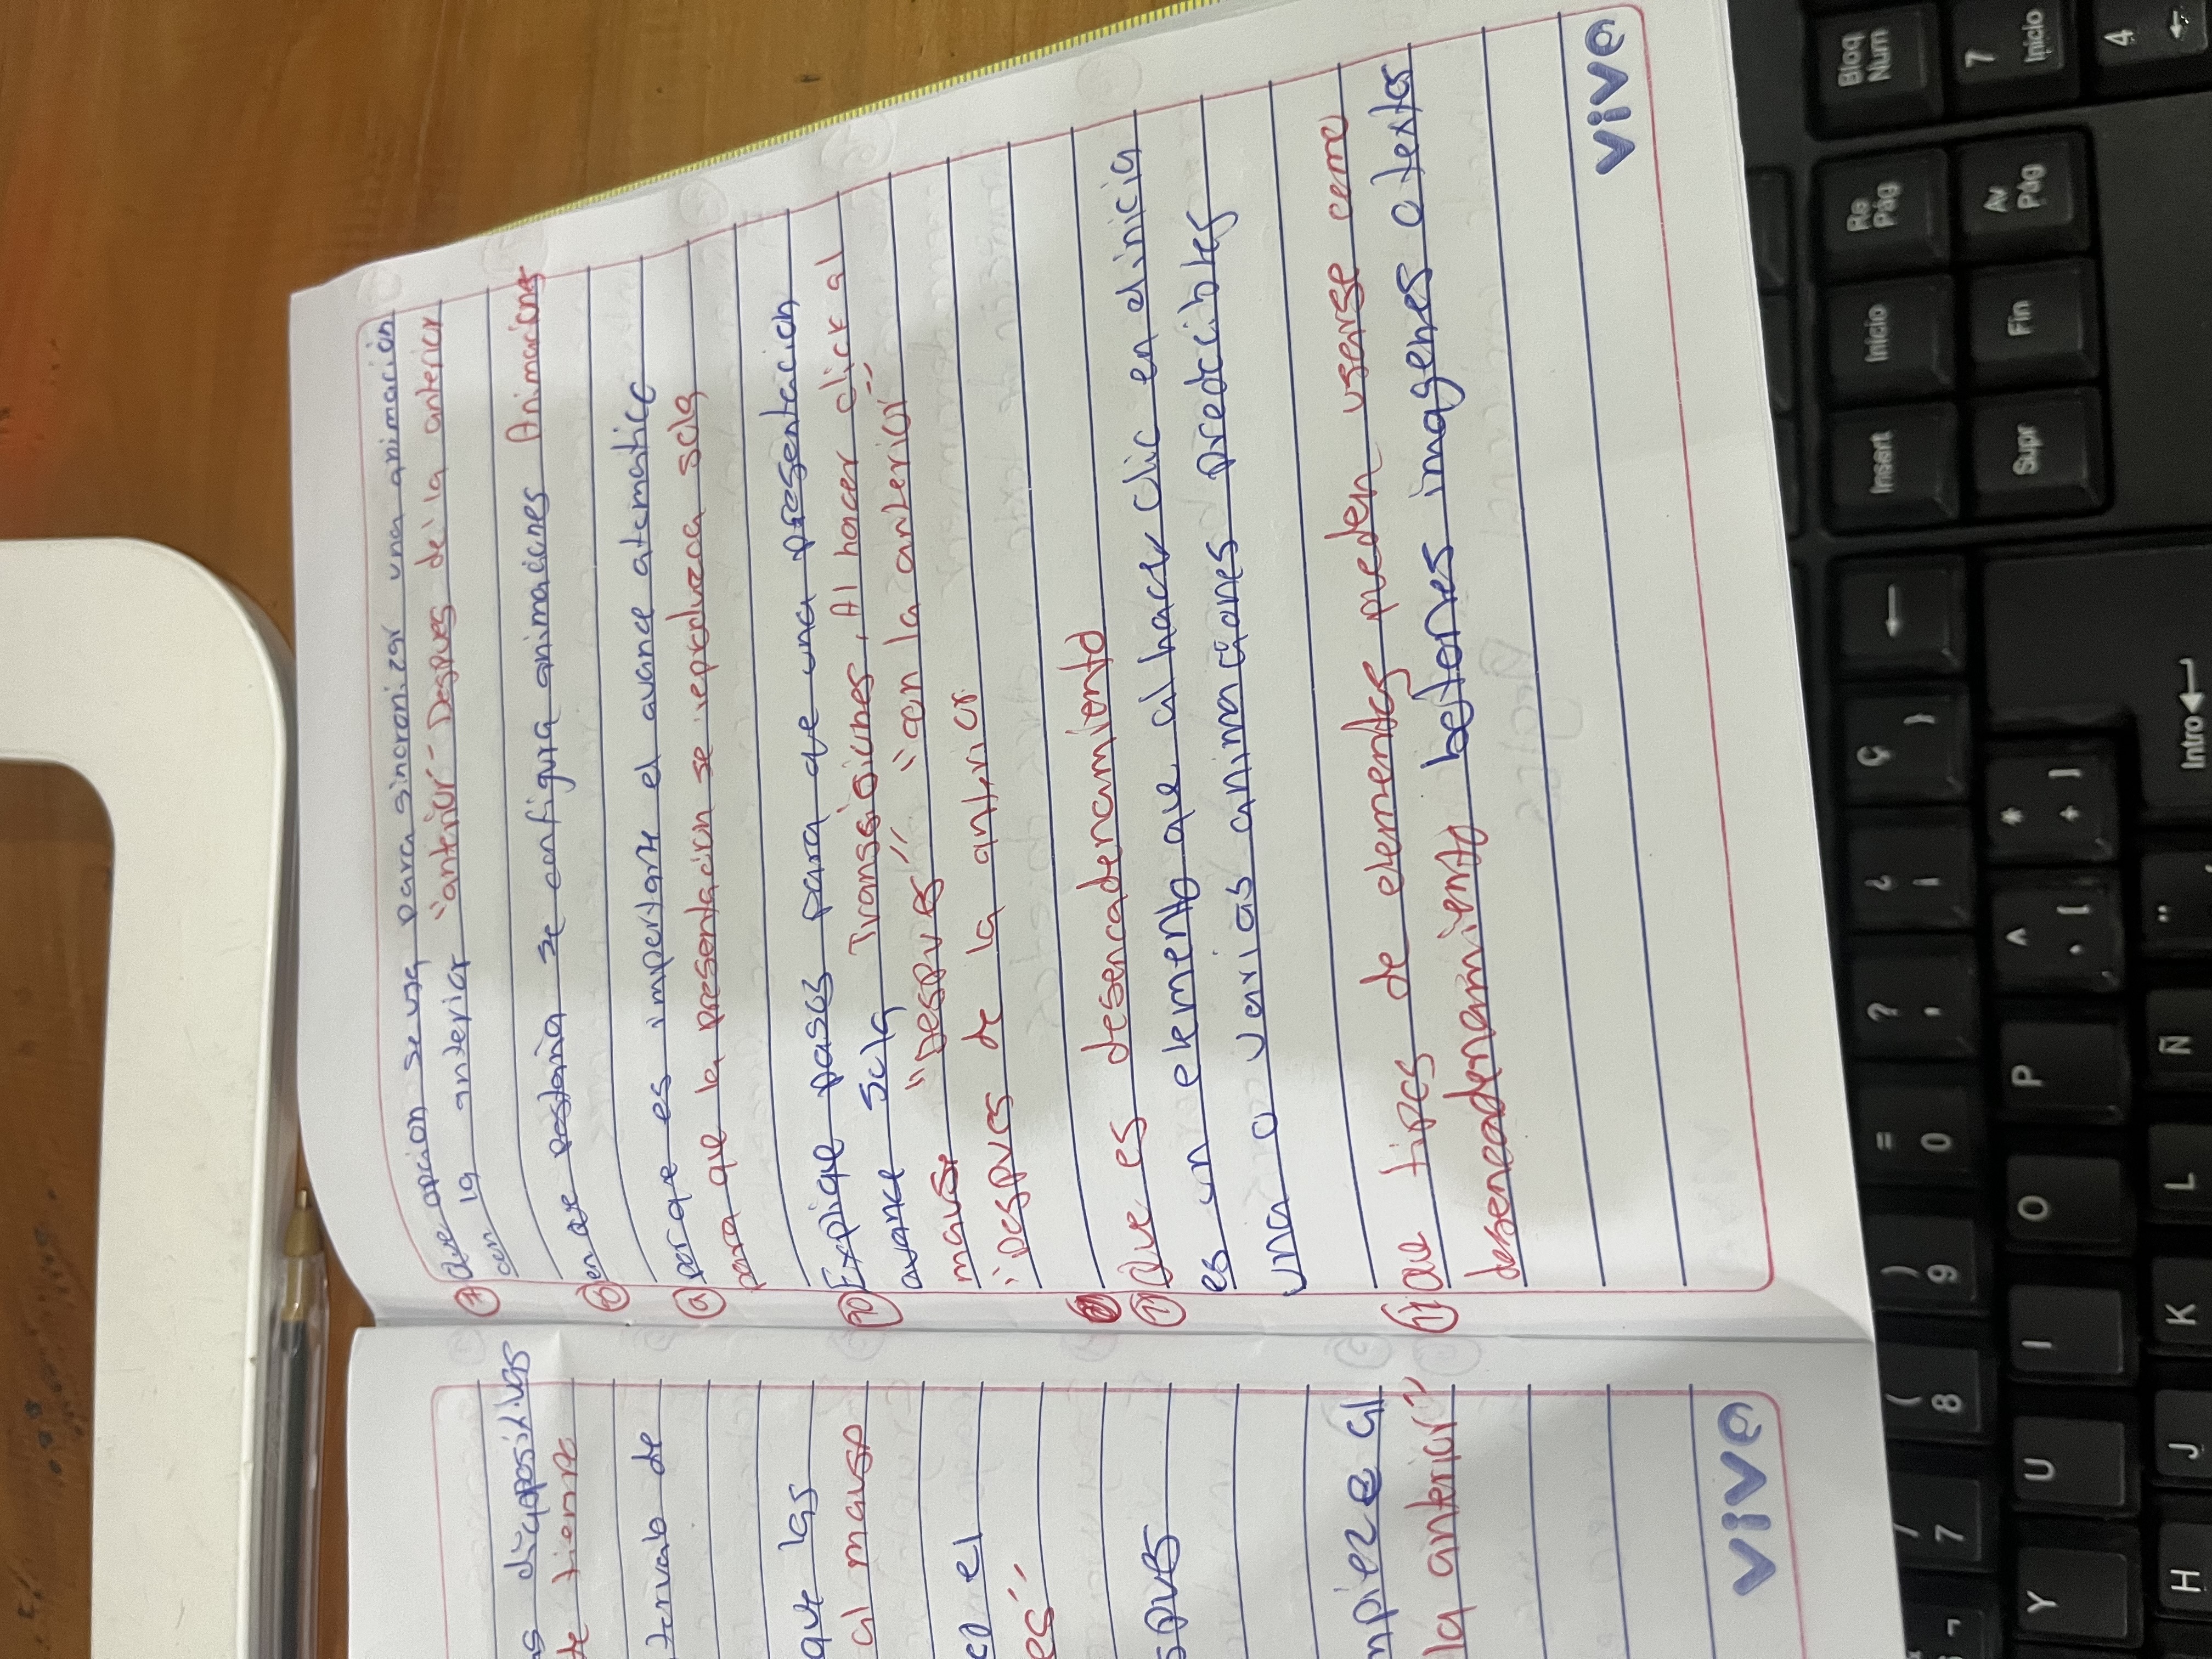 s diapositivas
te tiempo
tervalo de
que las
al mause
co el
es"
spues
mpieze al
la anterior"
viva
7 Que opcion se usa para sincronizar una animación
con la anterior "anterior" Despues de la anterior
8 en que pestaña se configura animaciones Animacions
9 por que es importante el avance atomatico
para que la presentacion se reproduzca sola
10 Explique pasos para que una presentacion
avance Sola Transsiciones, Al hacer click al
mause "Despues" "con la anterior"
"Despues de la anterior
11 Que es desencadencamiento
es un elemento que al hacer clic en el inicia
una o varias animaciones predecibles
11 que tipos de elementos pueden usarse como
desencadenamiento botones imagenes o textos
viva
Bloq Num
7 Inicio
4
Re Pág
Av Pág
Inicio
Fin
Insert
Supr
Ç }
Intro
* + ]
¿ ¡
^ [
¨ ´
? '
P
Ñ
= 0
O
L
) 9
I
K
( 8
U
J
/ 7
Y
H
¬